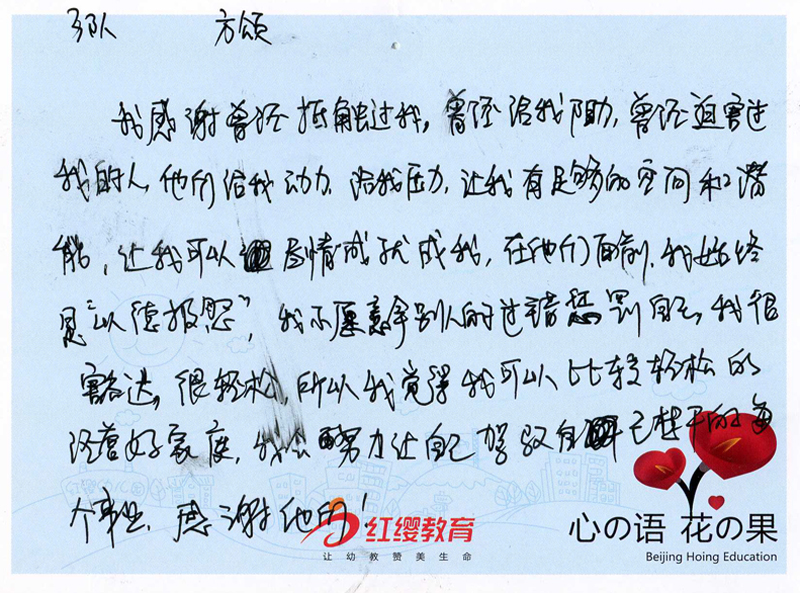 3队 方颂
我感谢曾经抵触过我,曾经给我阻力,曾经迫害过
我的人,他们给我动力,给我压力,让我有足够的空间和潜
能,让我可以尽情成就成我,在他们面前,我始终
是"以德报怨",我不愿意拿别人的过错惩罚自己,我很
豁达,很轻松,所以我觉得我可以比较轻松的
经营好家庭,我会努力让自己驾驭自己手的每
个事业,感谢他们!
红缨教育
让幼教赞美生命
心の语 花の果
Beijing Hoing Education